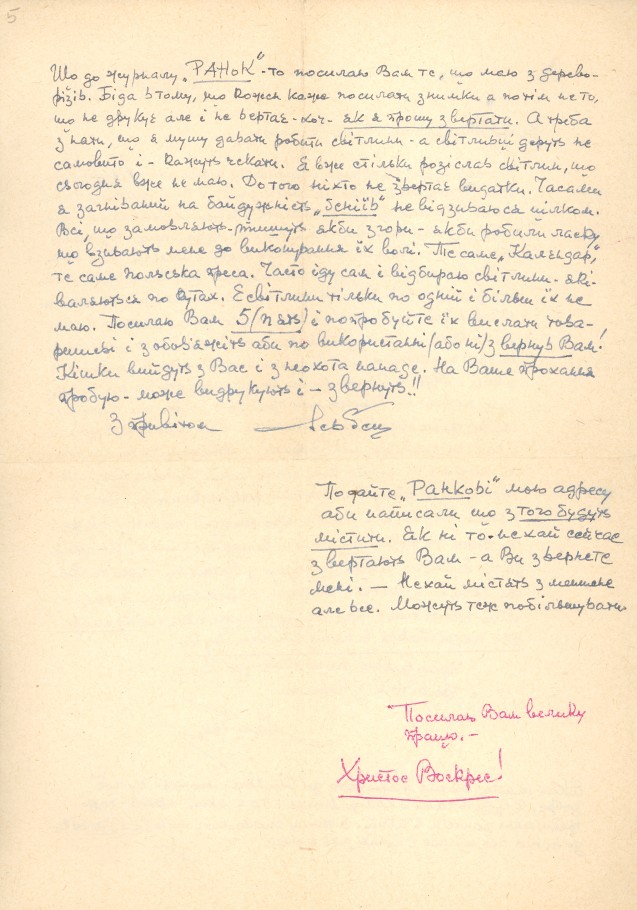 5
Що до журналу „РАНОК“ - то посилаю Вам те, що маю з дерево-
різів. Біда в тому, що кожен каже посилати знимки а потім не то,
що не друкує але і не вертає - хоч - як я прошу звертати. А треба
знати, що я мушу давати робити світлини - а світливці деруть не
самовито і - кажуть чекати. Я вже стільки розіслав світлин, що
сьогодня вже не маю. До того ніхто не звертає видатки. Часами
я загніваний на байдужність не відзиваюся цілком.
Всі, що замовляють - пишуть якби згори - якби робили ласку,
що взивають мене до виконування їх волі. Те саме „Календар“,
те саме польська преса. Часто іду сам і відбираю світлини - які
валяються по кутах. Є світлини тільки по одній і більш їх не
маю. Посилаю Вам 5 (пять) і попробуйте їх вислати това-
ришеві і зобов'яжіть аби по використанні (або ні) звернув Вам!
Кішки вийдуть з Вас і з неохота нападе. На Ваше прохання
пробую - може видрукують і - звернуть!!
З привітом
Подайте „Ранкові“ мою адресу
аби написали що з того будуть
містити. Як ні то - нехай сейчас
звертають Вам - а Ви звернете
мені. - Нехай містять з менше
але все. Можуть теж побільшувати.
Посилаю Вам велику
працю. -
Христос Воскрес!